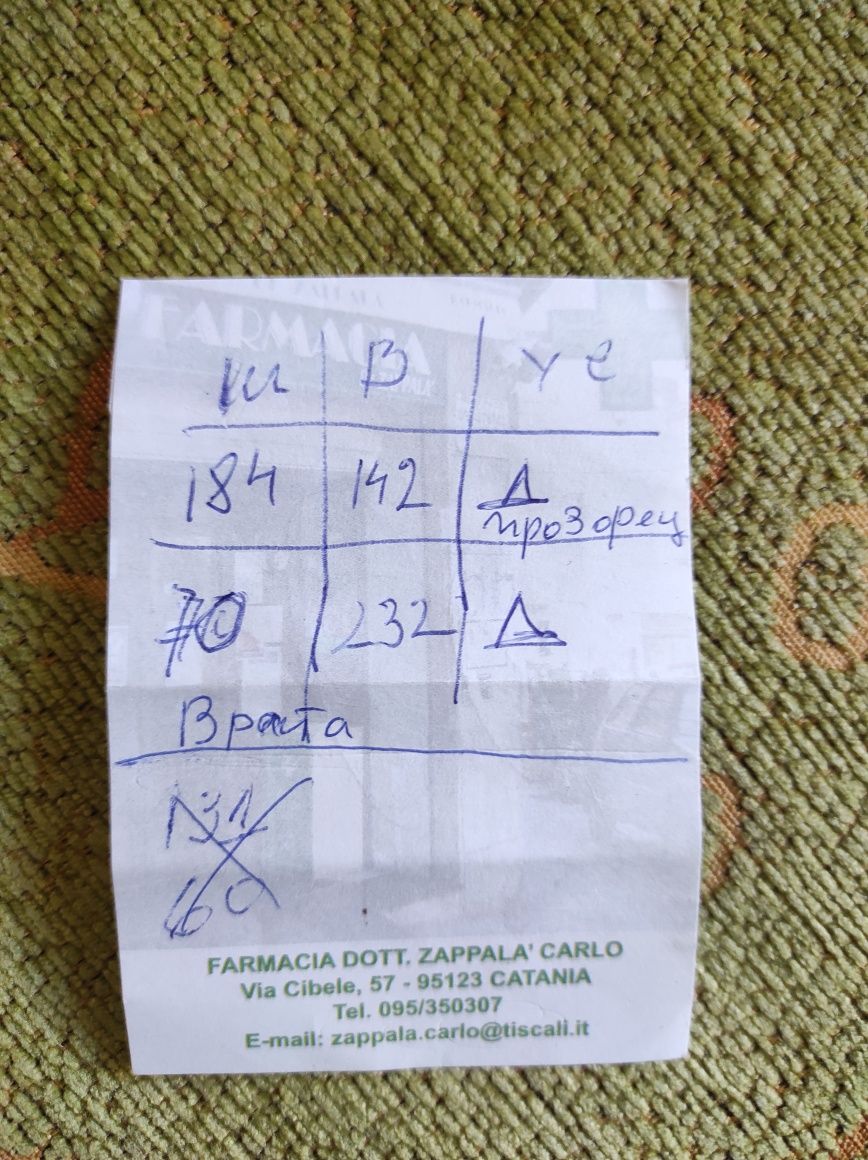 FARMACIA
Ш В УС
184 142 Δ
прозорец
70 232 Δ
Врата
131
60
FARMACIA DOTT. ZAPPALA' CARLO
Via Cibele, 57 - 95123 CATANIA
Tel. 095/350307
E-mail: zappala.carlo@tiscali.it